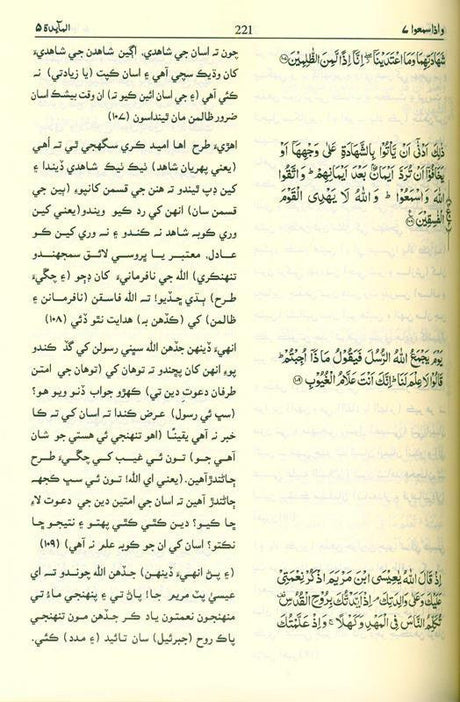 واذاسمعوا ٧
221
المآيدة ٥
شَهَادَتِهِمَا وَمَا اعْتَدَيْنَآ ۖ اِنَّآ اِذًا لَّمِنَ الظّٰلِمِيْنَ ﴿١٠٧﴾
ذٰلِكَ اَدْنٰٓى اَنْ يَّاْتُوْا بِالشَّهَادَةِ عَلٰى وَجْهِهَآ اَوْ
يَخَافُوْٓا اَنْ تُرَدَّ اَيْمَانٌۢ بَعْدَ اَيْمَانِهِمْ ؕ وَاتَّقُوا
اللّٰهَ وَاسْمَعُوْا ؕ وَاللّٰهُ لَا يَهْدِى الْقَوْمَ
الْفٰسِقِيْنَ ﴿١٠٨﴾
يَوْمَ يَجْمَعُ اللّٰهُ الرُّسُلَ فَيَقُوْلُ مَاذَآ اُجِبْتُمْ ؕ
قَالُوْا لَا عِلْمَ لَنَا ؕ اِنَّكَ اَنْتَ عَلَّامُ الْغُيُوْبِ ﴿١٠٩﴾
اِذْ قَالَ اللّٰهُ يٰعِيْسَى ابْنَ مَرْيَمَ اذْكُرْ نِعْمَتِىْ
عَلَيْكَ وَعَلٰى وَالِدَتِكَ ۘ اِذْ اَيَّدْتُّكَ بِرُوْحِ الْقُدُسِ
تُكَلِّمُ النَّاسَ فِى الْمَهْدِ وَكَهْلًا ۚ وَاِذْ عَلَّمْتُكَ
چون ته اسان جي شاهدي، اڳين شاهدن جي شاهديءَ
کان وڌيڪ سچي آهي ۽ اسان ڪپت (يا زيادتي) نه
ڪئي آهي (۽ جي اسان ائين ڪيو ته) ان وقت بيشڪ اسان
ضرور ظالمن مان ٿينداسون (١٠٧)
اهڙيءَ طرح اها اميد ڪري سگهجي ٿي ته اهي
(يعني پهريان شاهد) ٺيڪ ٺيڪ شاهدي ڏيندا ۽
کين ڊپ ٿيندو ته هنن جي قسمن کانپوءِ (ٻين جي
قسمن سان) انهن کي رد ڪيو ويندو(يعني کين
وري ڪوبه شاهد نه ڪندو ۽ نه وري کين ڪو
عادل، معتبر يا ڀروسي لائق سمجهندو
تنهنڪري) الله جي نافرمانيءَ کان ڊڄو (۽ چڱيءَ
طرح) ٻڌي ڇڏيو! ته الله فاسقن (نافرمانن ۽
ظالمن) کي (ڪڏهن به) هدايت نٿو ڏئي (١٠٨)
انهيءَ ڏينهن جڏهن الله سڀني رسولن کي گڏ ڪندو
پوءِ انهن کان پڇندو ته توهان کي (توهان جي امتن
طرفان دعوت دين تي) ڪهڙو جواب ڏنو ويو هو؟
(سڀ ئي رسول) عرض ڪندا ته اسان کي ته ڪا
خبر نه آهي يقينًا (اهو تنهنجي ئي هستي جو شان
آهي جو) تون ئي غيب کي چڱيءَ طرح
ڄاڻندڙ آهين. (يعني اي الله) تون ئي سڀ ڪجهه
ڄاڻندڙ آهين ته اسان جي امتين دين جي دعوت لاءِ
ڇا ڪيو؟ دين ڪٿي ڪٿي پهتو ۽ نتيجو ڇا
نڪتو؟ اسان کي ان جو ڪوبه علم نه آهي) (١٠٩)
(۽ پڻ انهيءَ ڏينهن) جڏهن الله چوندو ته۔ اي
عيسيٰ پٽ مريم جا! پاڻ تي ۽ پنهنجي ماءُ تي
منهنجون نعمتون ياد ڪر جڏهن مون تنهنجي
پاڪ روح (جبرئيل) سان تائيد (۽ مدد) ڪئي.